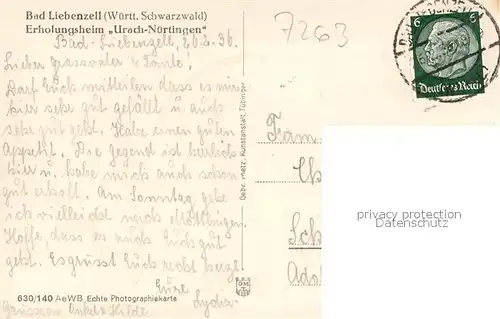 Bad Liebenzell (Württ. Schwarzwald)
Erholungsheim „Urach-Nürtingen"
7263
Bad-Liebenzell, 20.2.36
Lieber Grossvater & Tante!
Darf Euch mitteilen dass es mir
hier sehr gut gefällt u. auch
sehr gut geht. Habe einen guten
Appetit. Die Gegend ist herrlich
hier u. habe mich auch schon
gut erholt. Am Sonntag gehe
ich vielleicht nach Möttlingen.
Hoffe, dass es auch Euch gut
geht. Es grüsst Euch recht herzl.
Eure
Lydia
630/140 AeWB Echte Photographiekarte
Gebr. Metz, Kunstanstalt, Tübingen
6 6
Deutsches Reich
Fam
Ch
Sch
Adol
privacy protection
Datenschutz